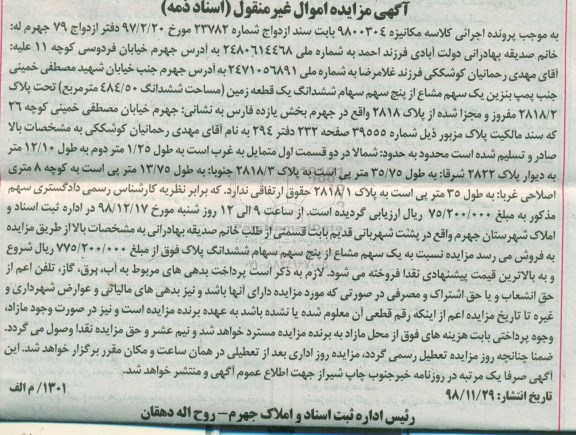 آگهی مزایده اموال غیر منقول (اسناد ذمه)
به موجب پرونده اجرائی کلاسه مکانیزه ۹۸۰۰۳۰۴ بابت سند ازدواج شماره ۲۳۷۸۲ مورخ ۹۷/۲/۲۰ دفتر ازدواج ۷۹ جهرم له:
خانم صدیقه بهادرانی دولت آبادی فرزند احمد به شماره ملی ۲۴۸۰۶۱۴۴۶۸ به آدرس جهرم خیابان فردوسی کوچه ۱۱ علیه:
آقای مهدی رحمانیان کوشککی فرزند غلامرضا به شماره ملی ۲۴۷۱۰۵۶۸۹۱ به آدرس جهرم جنب خیابان شهید مصطفی خمینی
جنب پمپ بنزین یک سهم مشاع از پنج سهم سهام ششدانگ یک قطعه زمین (مساحت ششدانگ ۴۸۴/۵۰ مترمربع) تحت پلاک
۲۸۱۸/۲ مفروز و مجزا شده از پلاک ۲۸۱۸ واقع در جهرم بخش یازده فارس به نشانی: جهرم خیابان مصطفی خمینی کوچه ۲۶
که سند مالکیت پلاک مزبور ذیل شماره ۳۹۵۵۵ صفحه ۲۳۲ دفتر ۲۹۴ به نام آقای مهدی رحمانیان کوشککی به مشخصات بالا
صادر و تسلیم شده است محدود به حدود: شمالا در دو قسمت اول متمایل به غرب است به طول ۱/۲۵ متر دوم به طول ۱۲/۱۰ متر
به دیوار پلاک ۲۸۲۲ شرقا: به طول ۳۵/۷۵ متر پی است به پلاک ۲۸۱۸/۳ جنوبا: به طول ۱۳/۷۵ متر پی است به کوچه ۸ متری
اصلاحی غربا: به طول ۳۵ متر پی است به پلاک ۲۸۱۸/۱ حقوق ارتفاقی ندارد. که برابر نظریه کارشناس رسمی دادگستری سهم
مذکور به مبلغ ۷۷۵/۲۰۰/۰۰۰ ریال ارزیابی گردیده است. از ساعت ۹ الی ۱۲ روز شنبه مورخ ۹۸/۱۲/۱۷ در اداره ثبت اسناد و
املاک شهرستان جهرم واقع در پشت شهربانی قدیم بابت قسمتی از طلب خانم صدیقه بهادرانی به مشخصات بالا از طریق مزایده
به فروش می رسد مزایده نسبت به یک سهم مشاع از پنج سهم سهام ششدانگ پلاک فوق از مبلغ ۷۷۵/۲۰۰/۰۰۰ ریال شروع
و به بالاترین قیمت پیشنهادی نقدا فروخته می شود. لازم به ذکر است پرداخت بدهی های مربوط به آب، برق، گاز، تلفن اعم از
حق انشعاب و یا حق اشتراک و مصرفی در صورتی که مورد مزایده دارای آنها باشد و نیز بدهی های مالیاتی و عوارض شهرداری و
غیره تا تاریخ مزایده اعم از اینکه رقم قطعی آن معلوم شده یا نشده باشد به عهده برنده مزایده است و نیز در صورت وجود مازاد،
وجوه پرداختی بابت هزینه های فوق از محل مازاد به برنده مزایده مسترد خواهد شد و نیم عشر و حق مزایده نقدا وصول می گردد.
ضمنا چنانچه روز مزایده تعطیل رسمی گردد، مزایده روز اداری بعد از تعطیلی در همان ساعت و مکان مقرر برگزار خواهد شد. این
آگهی صرفا یک مرتبه در روزنامه خبرجنوب چاپ شیراز جهت اطلاع عموم آگهی و منتشر خواهد شد.
تاریخ انتشار: ۹۸/۱۱/۲۹
۱۳۰۱/ م الف
رئیس اداره ثبت اسناد و املاک جهرم- روح اله دهقان